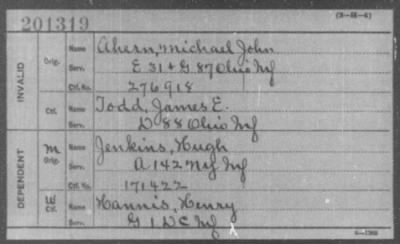 201319
(3-58-6)
INVALID
Orig. Name Ahern, Michael John
Serv. E 31 + G 87 Ohio Inf
Ctf. No. 276918
Ctf. Name Todd, James E.
Serv. D 88 Ohio Inf
DEPENDENT
M Orig. Name Jenkins, Hugh
Serv. A 142 NY Inf
Ctf. No. 171422
W Ctf. Name Hannis, Henry
Serv. G 1 DC Inf